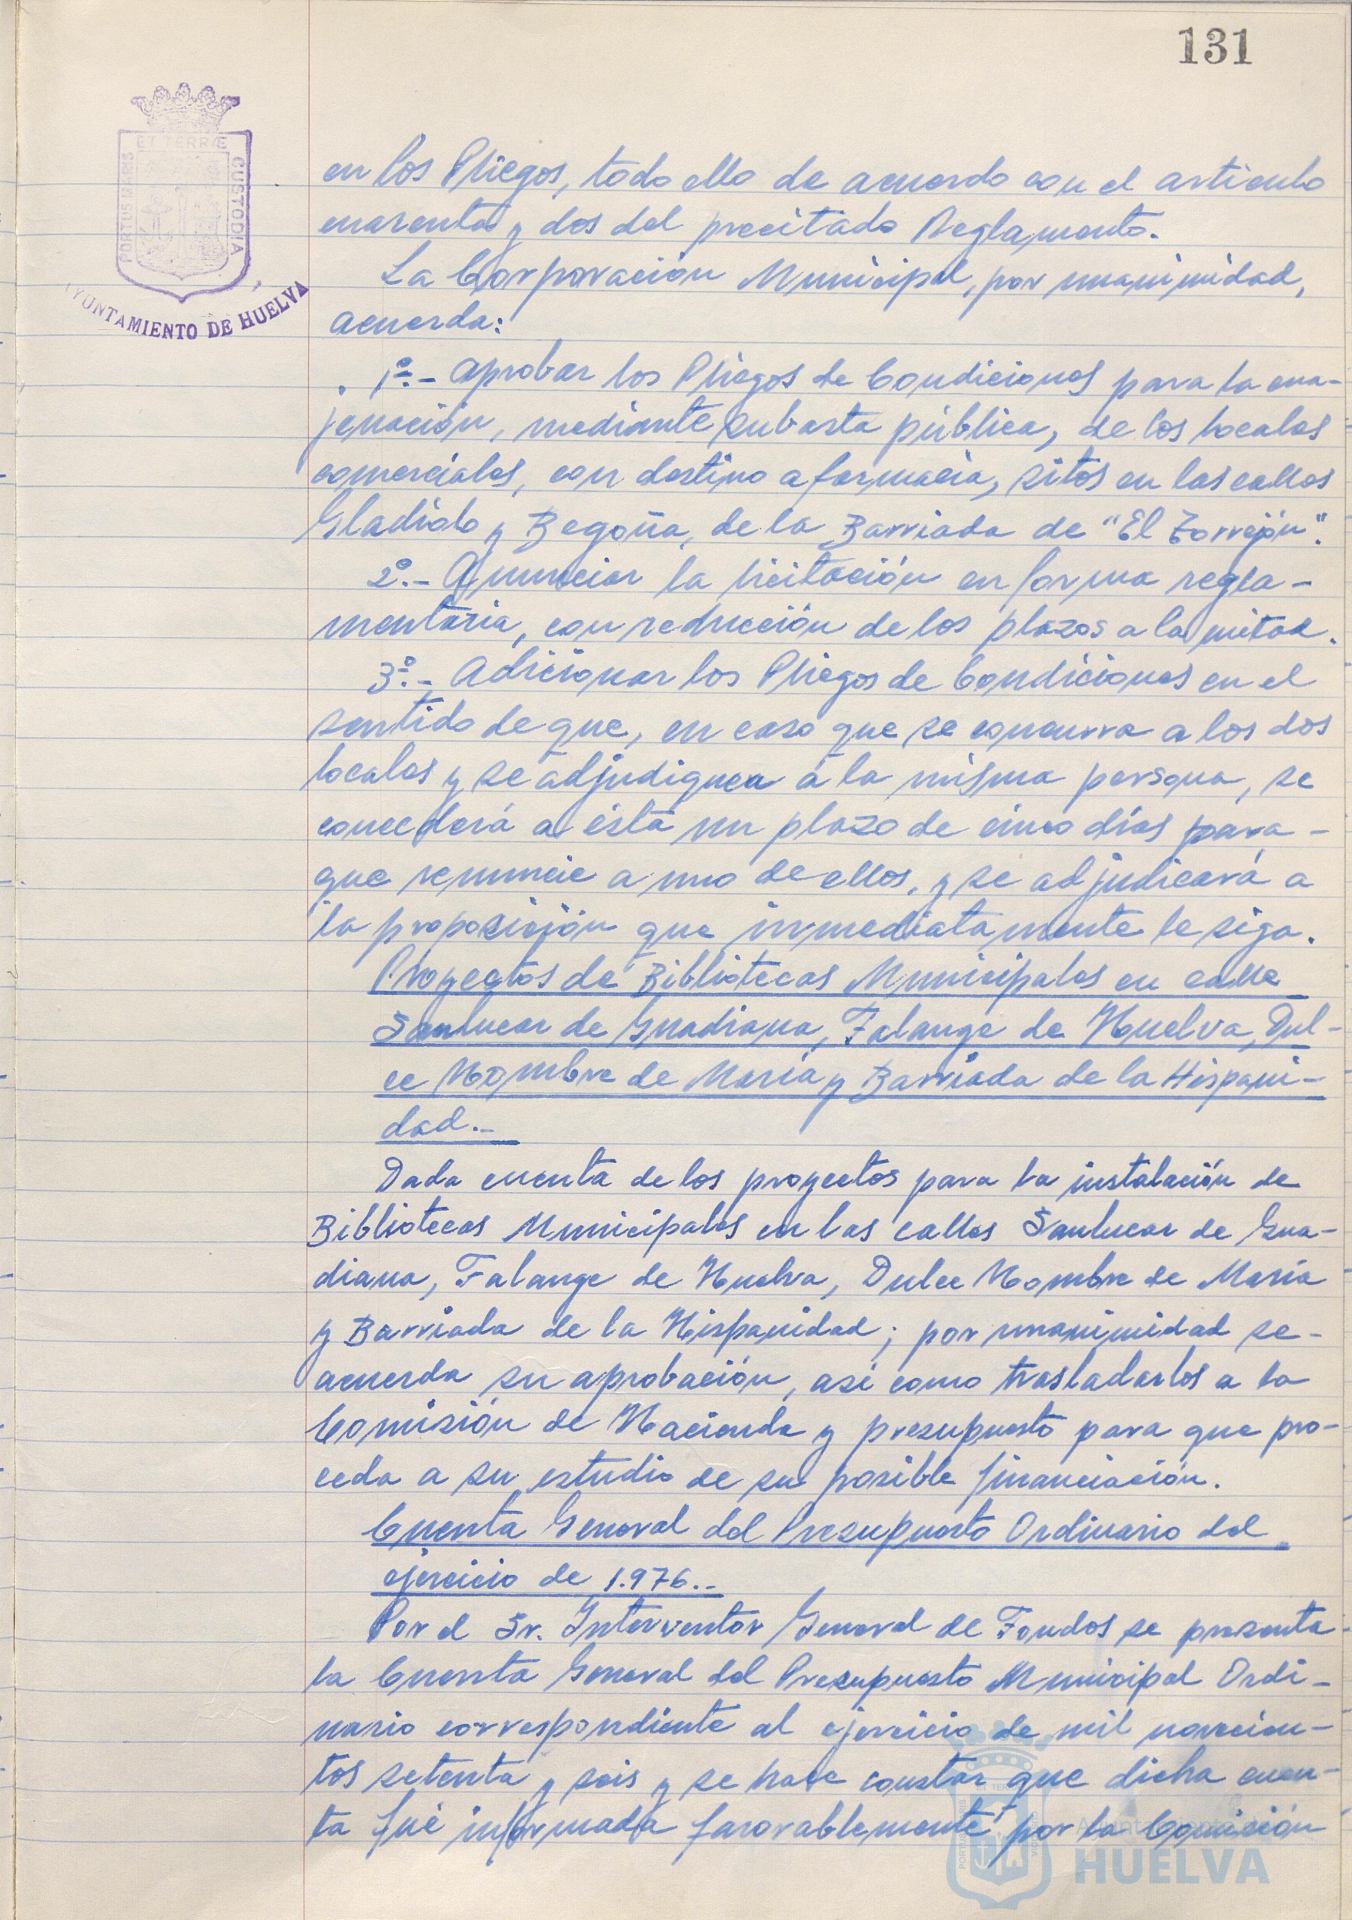 131
PORTUS MARIS ET TERRÆ CUSTODIA
AYUNTAMIENTO DE HUELVA
en los Pliegos, todo ello de acuerdo con el articulo
cuarenta y dos del precitado Reglamento.
La Corporación Municipal, por unanimidad,
acuerda:
1º.- Aprobar los Pliegos de Condiciones para la ena-
jenación, mediante subasta pública, de los locales
comerciales, con destino a farmacia, sitos en las calles
Gladiolo y Begoña, de la Barriada de "El Torrejón".
2º.- Anunciar la licitación en forma regla-
mentaria, con reducción de los plazos a la mitad.
3º.- Adicionar los Pliegos de Condiciones en el
sentido de que, en caso que se concurra a los dos
locales y se adjudiquen a la misma persona, se
concederá a ésta un plazo de cinco dias para -
que renuncie a uno de ellos, y se adjudicará a
la proposición que inmediatamente le siga.
Proyectos de Bibliotecas Municipales en calle
Sanlucar de Guadiana, Falange de Huelva, Dul-
ce Nombre de María y Barriada de la Hispani-
dad.-
Dada cuenta de los proyectos para la instalación de
Bibliotecas Municipales en las calles Sanlucar de Gua-
diana, Falange de Huelva, Dulce Nombre de María
y Barriada de la Hispanidad; por unanimidad se-
acuerda su aprobación, asi como trasladarlos a la
Comisión de Hacienda y presupuesto para que pro-
ceda a su estudio de su posible financiación.
Cuenta General del Presupuesto Ordinario del
ejercicio de 1.976.-
Por el Sr. Interventor General de Fondos se presenta
la Cuenta General del Presupuesto Municipal Ordi-
nario correspondiente al ejercicio de mil novecien-
tos setenta y seis y se hace constar que dicha cuen-
ta fué informada favorablemente por la Comisión
Ayuntamiento de
HUELVA